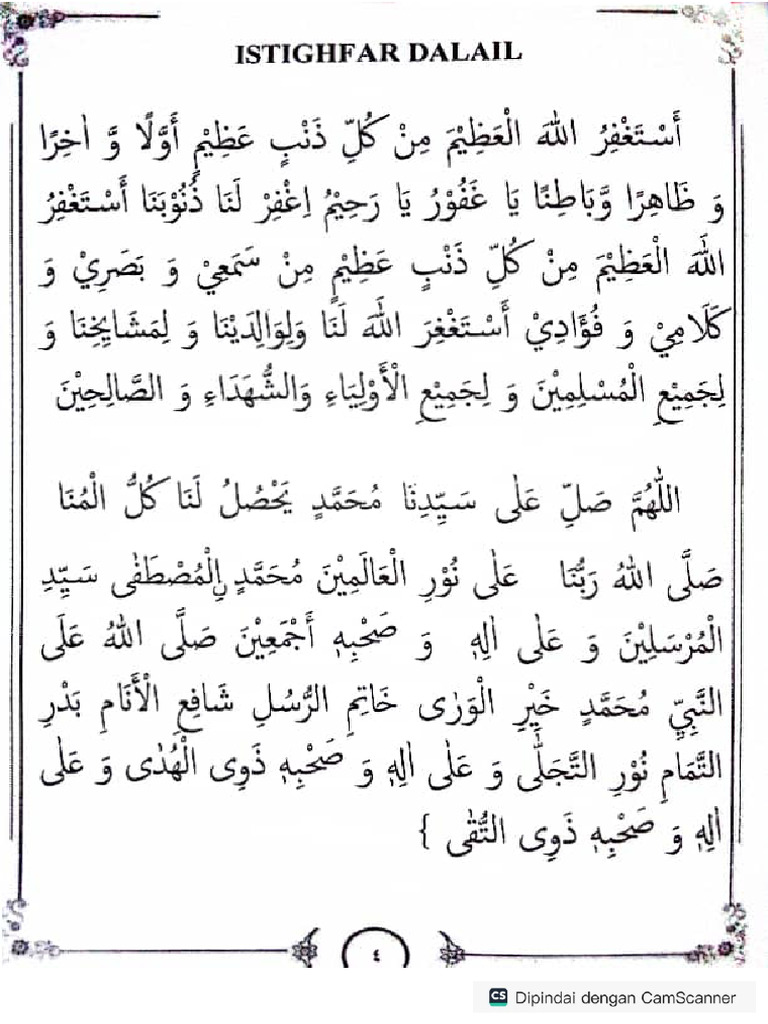 ISTIGHFAR DALAIL
أَسْتَغْفِرُ اللهَ الْعَظِيْمَ مِنْ كُلِّ ذَنْبٍ عَظِيْمٍ أَوَّلًا وَّ اٰخِرًا
وَ ظَاهِرًا وَّبَاطِنًا يَا غَفُوْرُ يَا رَحِيْمُ اِغْفِرْ لَنَا ذُنُوْبَنَا أَسْتَغْفِرُ
اللّٰهَ الْعَظِيْمَ مِنْ كُلِّ ذَنْبٍ عَظِيْمٍ مِنْ سَمَعِيْ وَ بَصَرِيْ وَ
كَلَامِيْ وَ فُؤَادِيْ أَسْتَغْفِرَ اللّٰهَ لَنَا وَلِوَالِدَيْنَا وَ لِمَشَايِخِنَا وَ
لِجَمِيْعِ الْمُسْلِمِيْنَ وَ لِجَمِيْعِ الْأَوْلِيَاءِ وَالشُّهَدَاءِ وَ الصَّالِحِيْنَ
اللّٰهُمَّ صَلِّ عَلٰى سَيِّدِنَا مُحَمَّدٍ يَحْصُلُ لَنَا كُلُّ الْمُنَا
صَلَّى اللهُ رَبُّنَا عَلٰى نُوْرِ الْعَالَمِيْنَ مُحَمَّدٍ نِالْمُصْطَفٰى سَيِّدِ
الْمُرْسَلِيْنَ وَ عَلٰى اٰلِهٖ وَ صَحْبِهٖ أَجْمَعِيْنَ صَلَّى اللهُ عَلَى
النَّبِيِّ مُحَمَّدٍ خَيْرِ الْوَرٰى خَاتِمِ الرُّسُلِ شَافِعِ الْأَنَامِ بَدْرِ
التَّمَامِ نُوْرِ التَّجَلّٰى وَ عَلٰى اٰلِهٖ وَ صَحْبِهٖ ذَوِى الْهُدٰى وَ عَلٰى
اٰلِهٖ وَ صَحْبِهٖ ذَوِى التُّقٰى }
٤
CS Dipindai dengan CamScanner